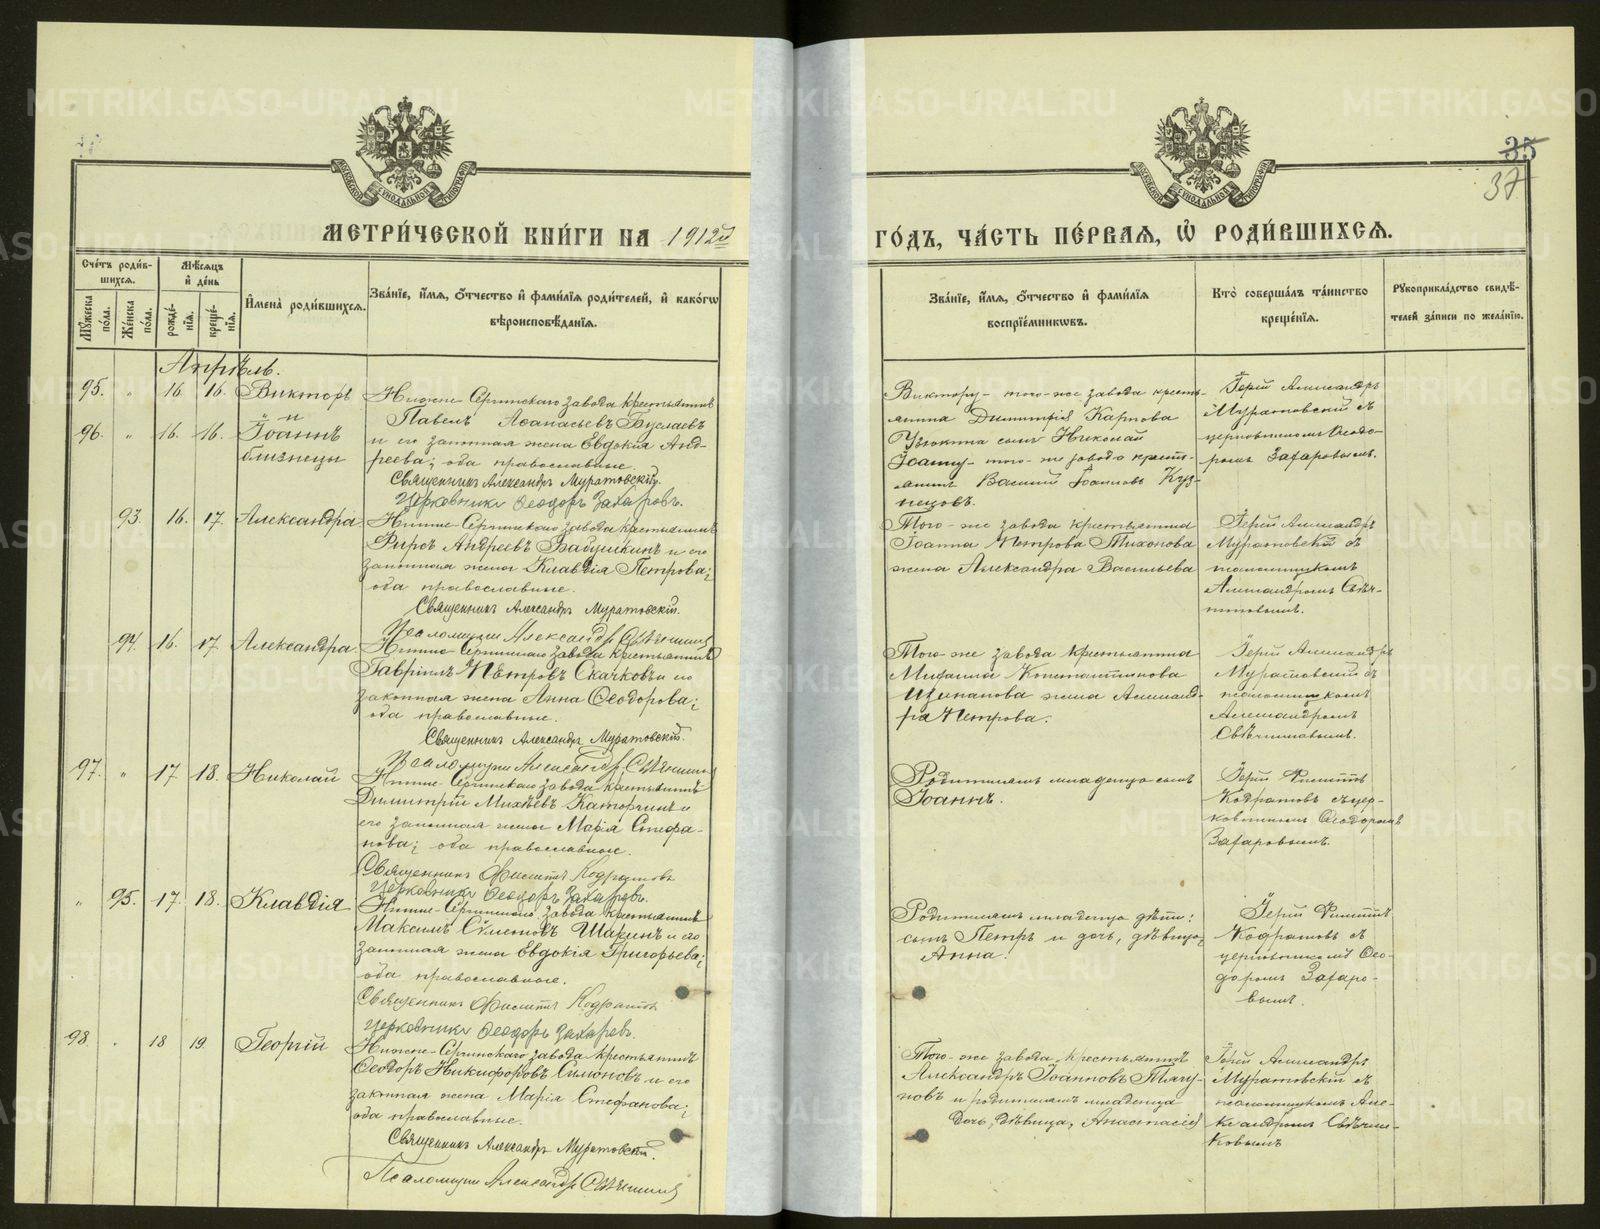 METRIKI.GASO-URAL.RU
МОСКОВСКОЙ СѴНОДАЛЬНОЙ ТИПОГРАФІИ
35
37
МЕТРИ́ЧЕСКОЙ КНИ́ГИ НА 1912й
ГО́ДЪ, ЧА́СТЬ ПЕ́РВАЯ, Ѡ РОДИ́ВШИХСЯ.
Сче́тъ роди́в-
шихся.
Мѣ́сяцъ
и де́нь
Му́жеска по́ла.
Же́нска по́ла.
рожде́нія.
креще́нія.
Имена̀ роди́вшихся.
Зва́ніе, и́мя, о́тчество и фами́лія роди́телей, и како́гѡ
вѣроисповѣ́данія.
Зва́ніе, и́мя, о́тчество и фами́лія
воспріе́мникѡвъ.
Кто̀ соверша́лъ та́инство
креще́нія.
Рукоприкла́дство свидѣ́-
телей за́писи по жела́нію.
Апрѣль.
95. " 16. 16. Викторъ
и
96. " 16. 16. Іоаннъ
близнецы
Нижне-Сергинскаго завода крестьянинъ
Павелъ Аѳанасьевъ Буслаевъ
и его законная жена Евдокія Анд-
реева; оба православные.
Священникъ Александръ Муратовскій.
Церковникъ Ѳеодоръ Захаровъ.
Виктору - того-же завода кресть-
янина Димитрія Карпова
сынъ Николай
Іоанну - того-же завода кресть-
янинъ Василій Іоанновъ Куз-
нецовъ.
Іерей Александръ
Муратовскій съ
церковникомъ Ѳеодо-
ромъ Захаровымъ.
93. 16. 17. Александра
Нижне-Сергинскаго завода крестьянинъ
Фирсъ Андреевъ Бабушкинъ и его
законная жена Клавдія Петрова;
оба православные.
Священникъ Александръ Муратовскій.
Псаломщикъ Александръ
Того-же завода крестьянина
Іоанна Петрова Тихонова
жена Александра Васильева
Іерей Александръ
Муратовскій съ
псаломщикомъ
Александромъ Свѣч-
никовымъ.
94. 16. 17. Александра
Нижне-Сергинскаго завода крестьянинъ
Гавріилъ Петровъ Скачковъ и его
законная жена Анна Ѳеодорова;
оба православные.
Священникъ Александръ Муратовскій.
Псаломщикъ Александръ
Того-же завода крестьянина
Михаила Константинова
жена Александ-
ра Петрова.
Іерей Александръ
Муратовскій съ
псаломщикомъ
Александромъ
97. " 17. 18. Николай
Нижне-Сергинскаго завода крестьянинъ
Димитрій Михѣевъ Каторгинъ и
его законная жена Марія Стефа-
нова; оба православные.
Священникъ Филиппъ Кодратовъ
Церковникъ Ѳеодоръ Захаровъ.
Родителямъ младенца сынъ
Іоаннъ.
Іерей Филиппъ
Кодратовъ съ цер-
ковникомъ Ѳеодоромъ
Захаровымъ.
" 95. 17. 18. Клавдія
Нижне-Сергинскаго завода крестьянинъ
Максимъ Шакинъ и его
законная жена Евдокія Григорьева;
оба православные.
Священникъ Филиппъ Кодратовъ
Церковникъ Ѳеодоръ Захаровъ.
Родителямъ младенца дѣти:
сынъ Петръ и дочь, дѣвица,
Анна.
Іерей Филиппъ
Кодратовъ съ
церковникомъ Ѳео-
доромъ Захаро-
вымъ.
98. " 18 19. Георгій
Нижне-Сергинскаго завода крестьянинъ
Ѳеодоръ Никифоровъ Симоновъ и его
законная жена Марія Стефанова;
оба православные.
Священникъ Александръ Муратовскій.
Псаломщикъ Александръ
Того-же завода крестьянинъ
Александръ Іоанновъ Тягу-
новъ и родителямъ младенца
дочь, дѣвица, Анастасія
Іерей Александръ
Муратовскій съ
псаломщикомъ Але-
ксандромъ Свѣчни-
ковымъ